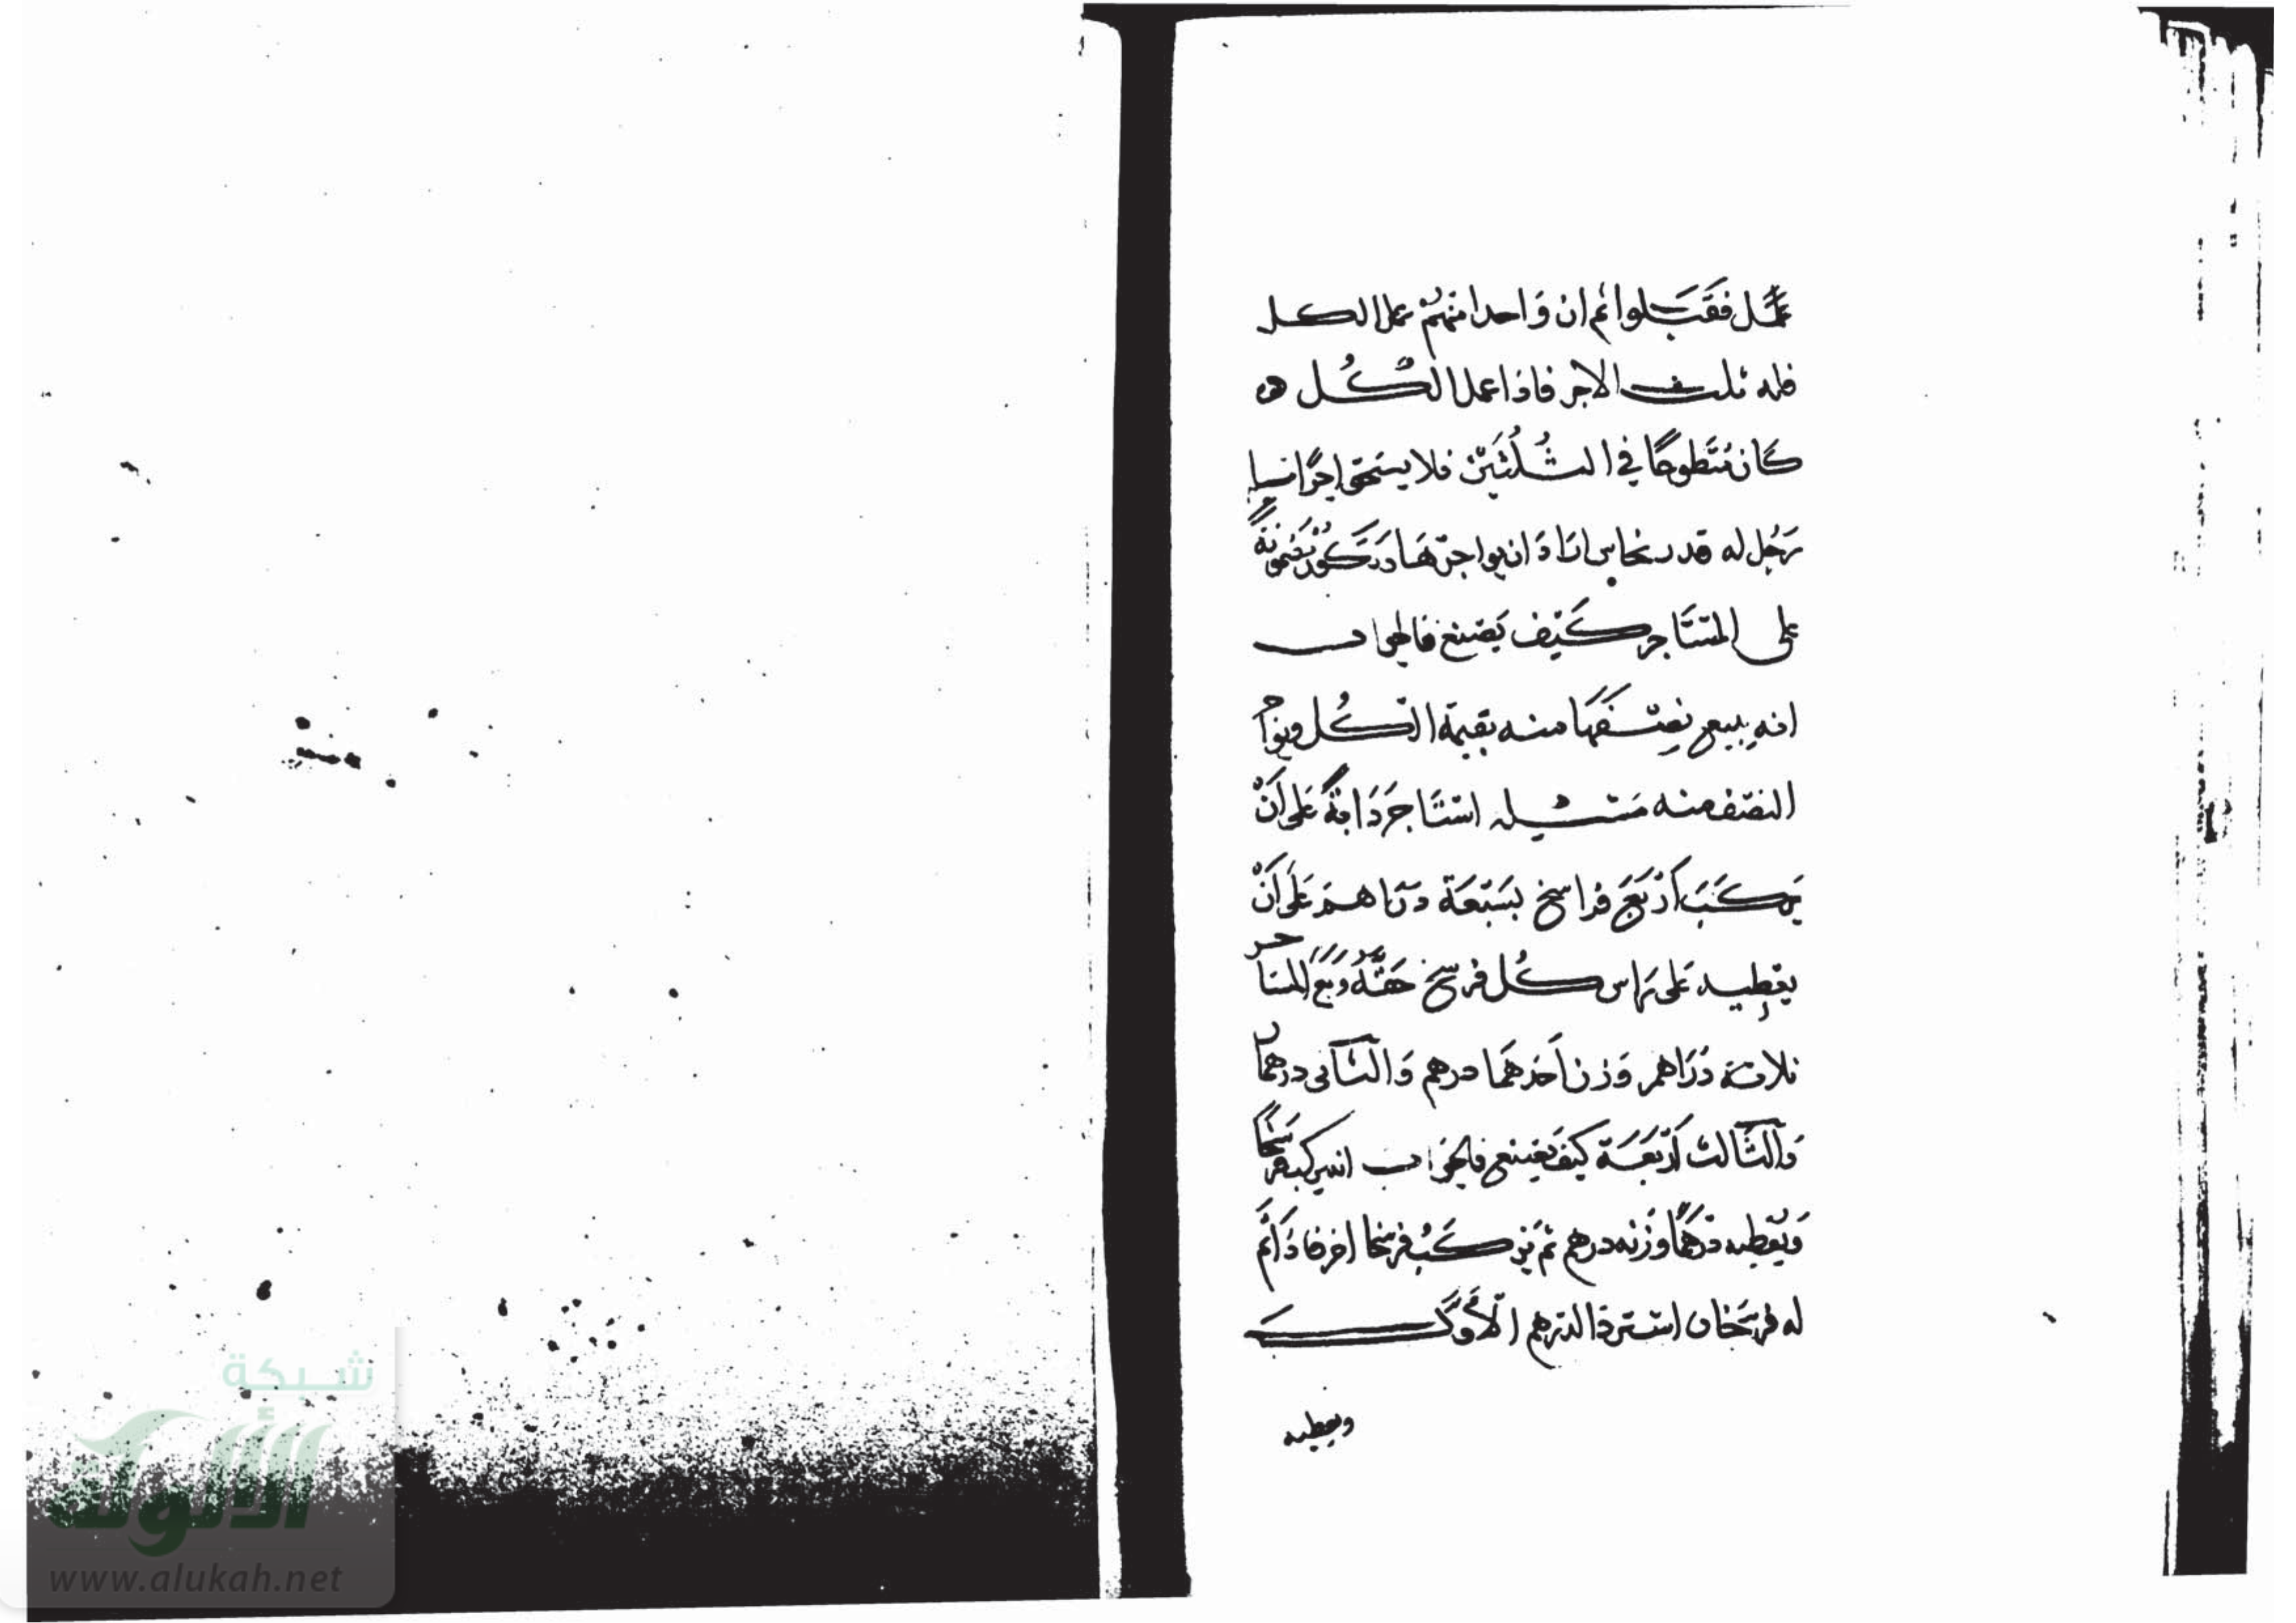 عمل فقبلوا ثم ان واحدا منهم عمل الكل
فله ثلث الاجر فاذا عمل الكل ه
كان متطوعًا في الثلثين فلا يستحق اجرًا
رجل له قدر نحاس اراد ان يواجرها وتكون مضمونة
على المستاجر كيف يصنع فالجواب
انه يبيع نصفها منه بقيمة الكل ويواجر
النصف منه مسئله استاجر دابة على ان
يركب اربع فراسخ بسبعة دراهم على ان
يعطيه على راس كل فرسخ حقه ومع المستاجر
ثلاثة دراهم وزن احدهما درهم والثاني درهمان
والثالث اربعة كيف يصنع فالجواب انه يركب فرسخا
ويعطيه درهمًا وزنه درهم ثم يركب فرسخا اخر فاذا تم
له فرسخان استرد الدرهم الاول
ويعطيه
شبكة
الألوكة
www.alukah.net